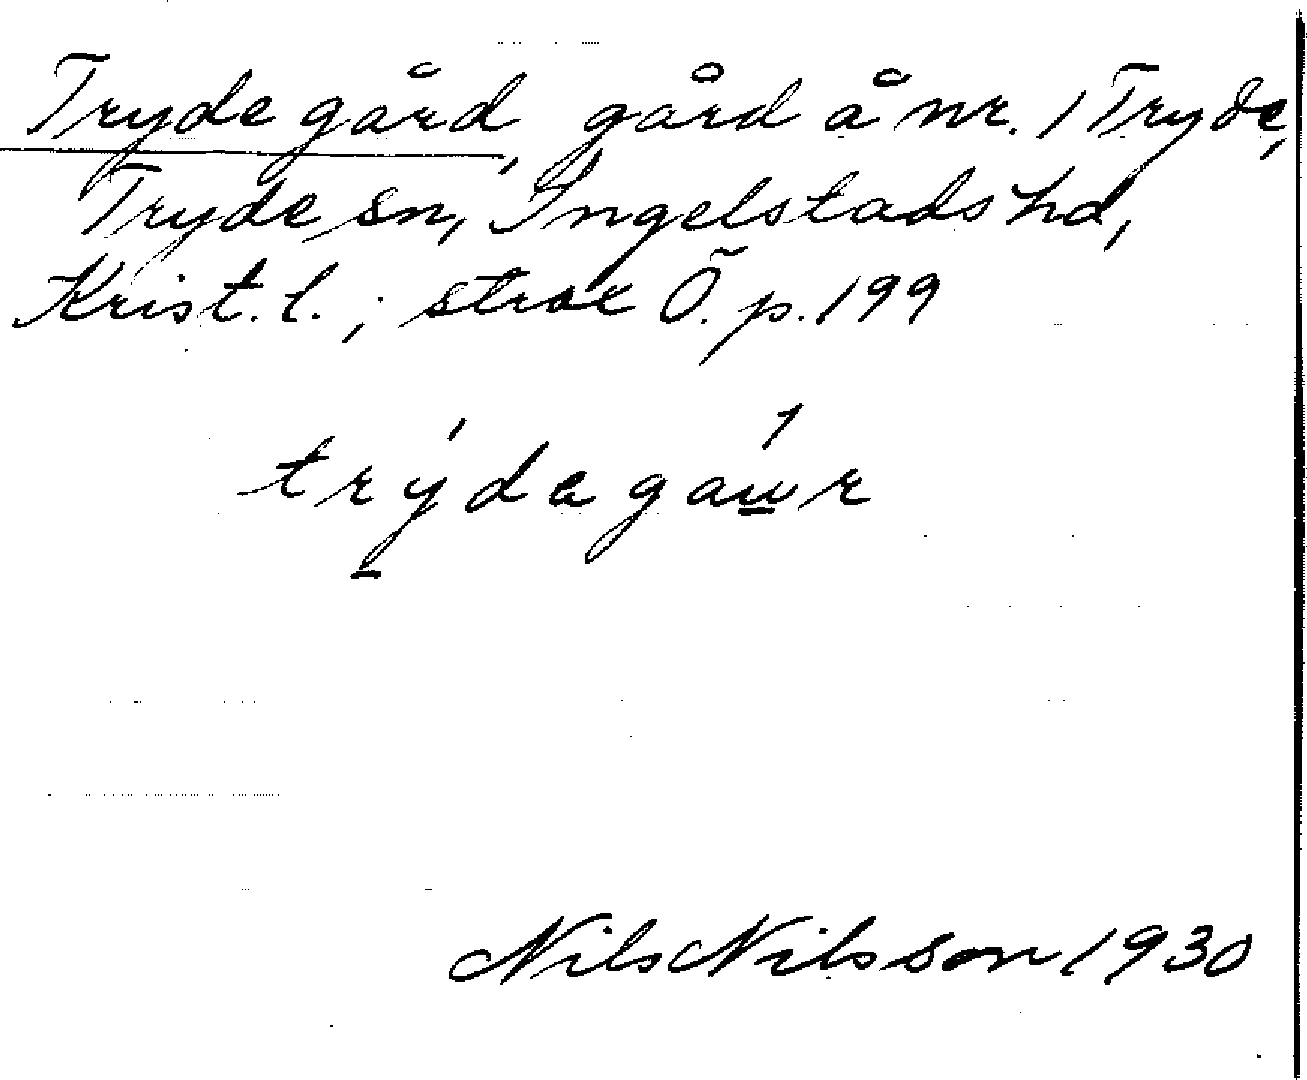 Tryde gård, gård å nr. 1 Tryde,
Tryde sn, Ingelstads hd,
Krist. l.; strax Ö. p. 199
trýdagau̲r
Nils Nilsson 1930